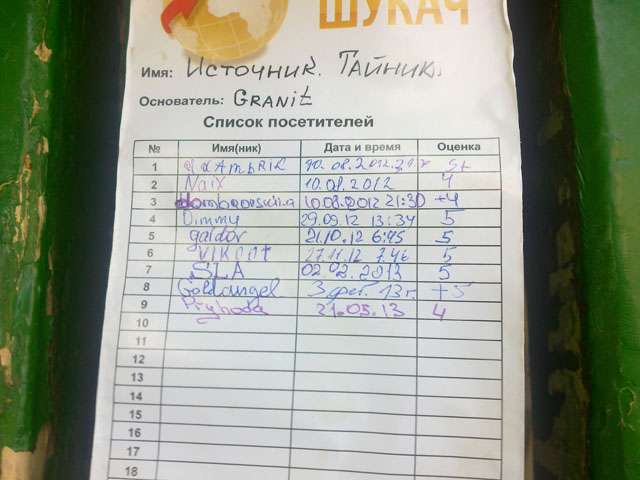 ШУКАЧ
Имя: Источник. Тайник.
Основатель: GRANIT
Список посетителей
№ Имя(ник) Дата и время Оценка
1 10.08.2012 5+
2 Naix 10.08.2012 4
3 10.08.2012 21:30 +4
4 Dimmy 29.09.12 13:34 5
5 galdor 21.10.12 6:45 5
6 VIKCOT 27.11.12 7.46 5
7 SLA 02.02.2013 5
8 Goldangel 3 фев. 13 г. +5
9 Pryhoda 21.05.13 4
10
11
12
13
14
15
16
17
18